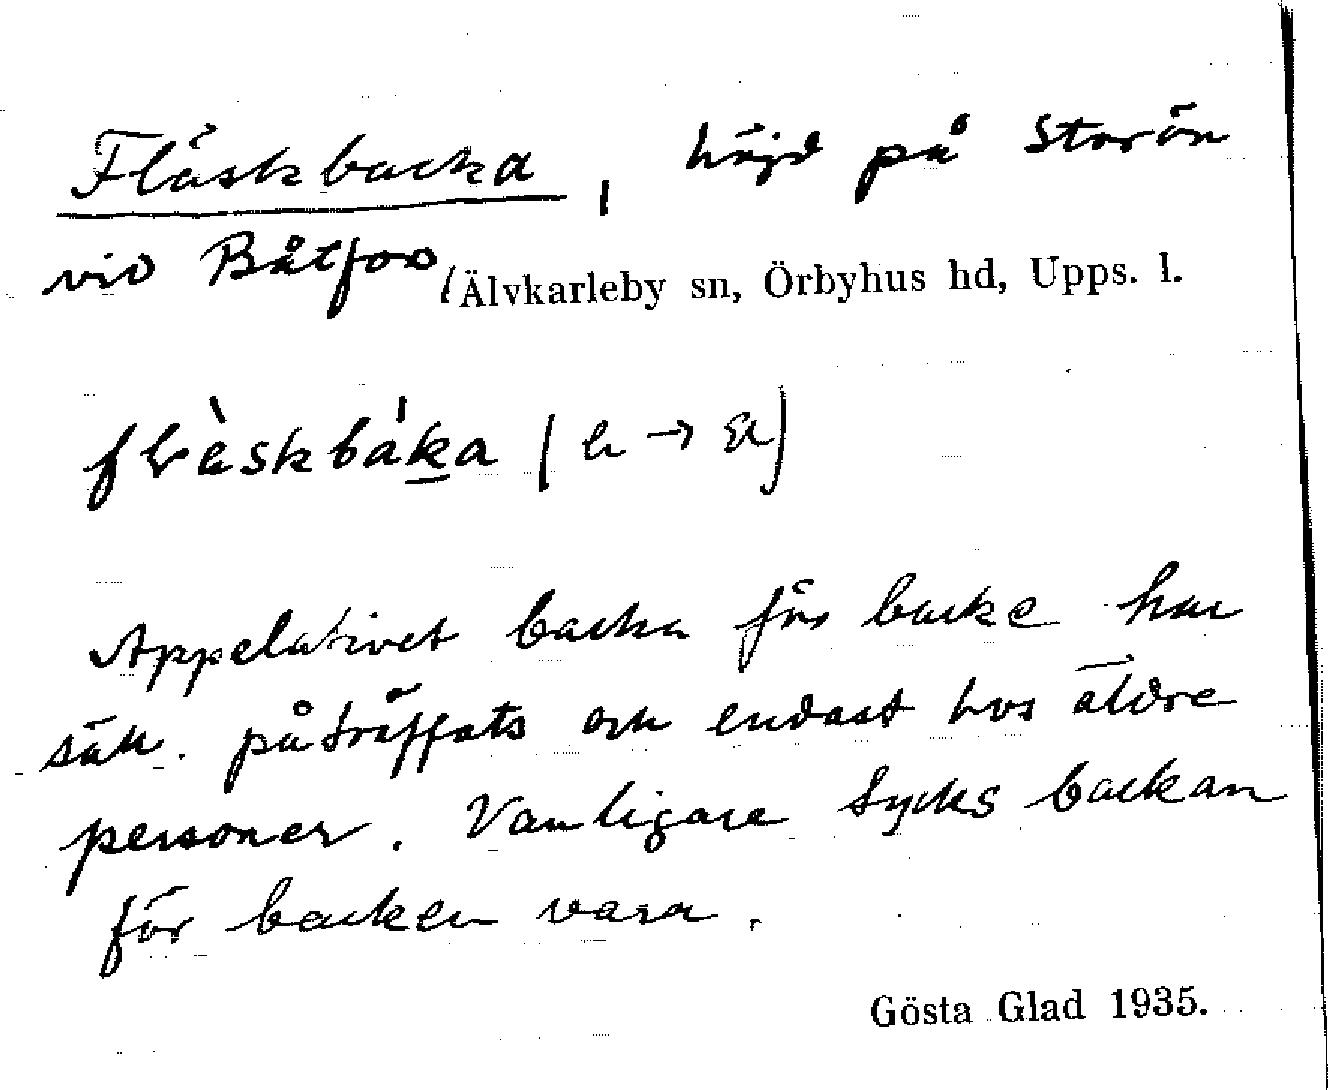 Fläskbacka, höjd på Storön
vid Båtfors, Älvkarleby sn, Örbyhus hd, Upps. l.
flàskbáka (a → a)
Appelativet backa för backe har
säll. påträffats och endast hos äldre
personer. Vanligare tycks backan
för backen vara.
Gösta Glad 1935.